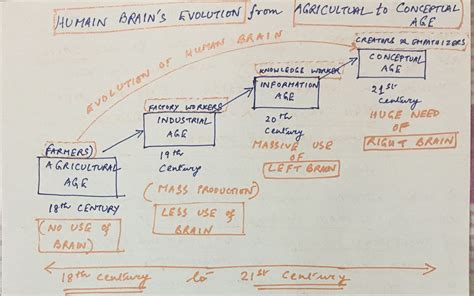 HUMAIN BRAIN'S EVOLUTION from AGRICULTUAL to CONCEPTUAL AGE
EVOLUTION OF HUMAN BRAIN
CREATORS or EMPATOIZERS
CONCEPTUAL
AGE
21st
century
HUGE NEED
OF
RIGHT BRAIN
KNOWLEDGE WORKER
INFORMATION
AGE
20th
Century
MASSIVE USE
OF
LEFT BRAIN
FACTORY WORKERS
INDUSTRIAL
AGE
19th
Century
(MASS PRODUCTION)
LESS USE OF
BRAIN
FARMERS)
AGRICULTURAL
AGE
18th CENTURY
(NO USE OF
BRAIN)
18th Century to 21st Century